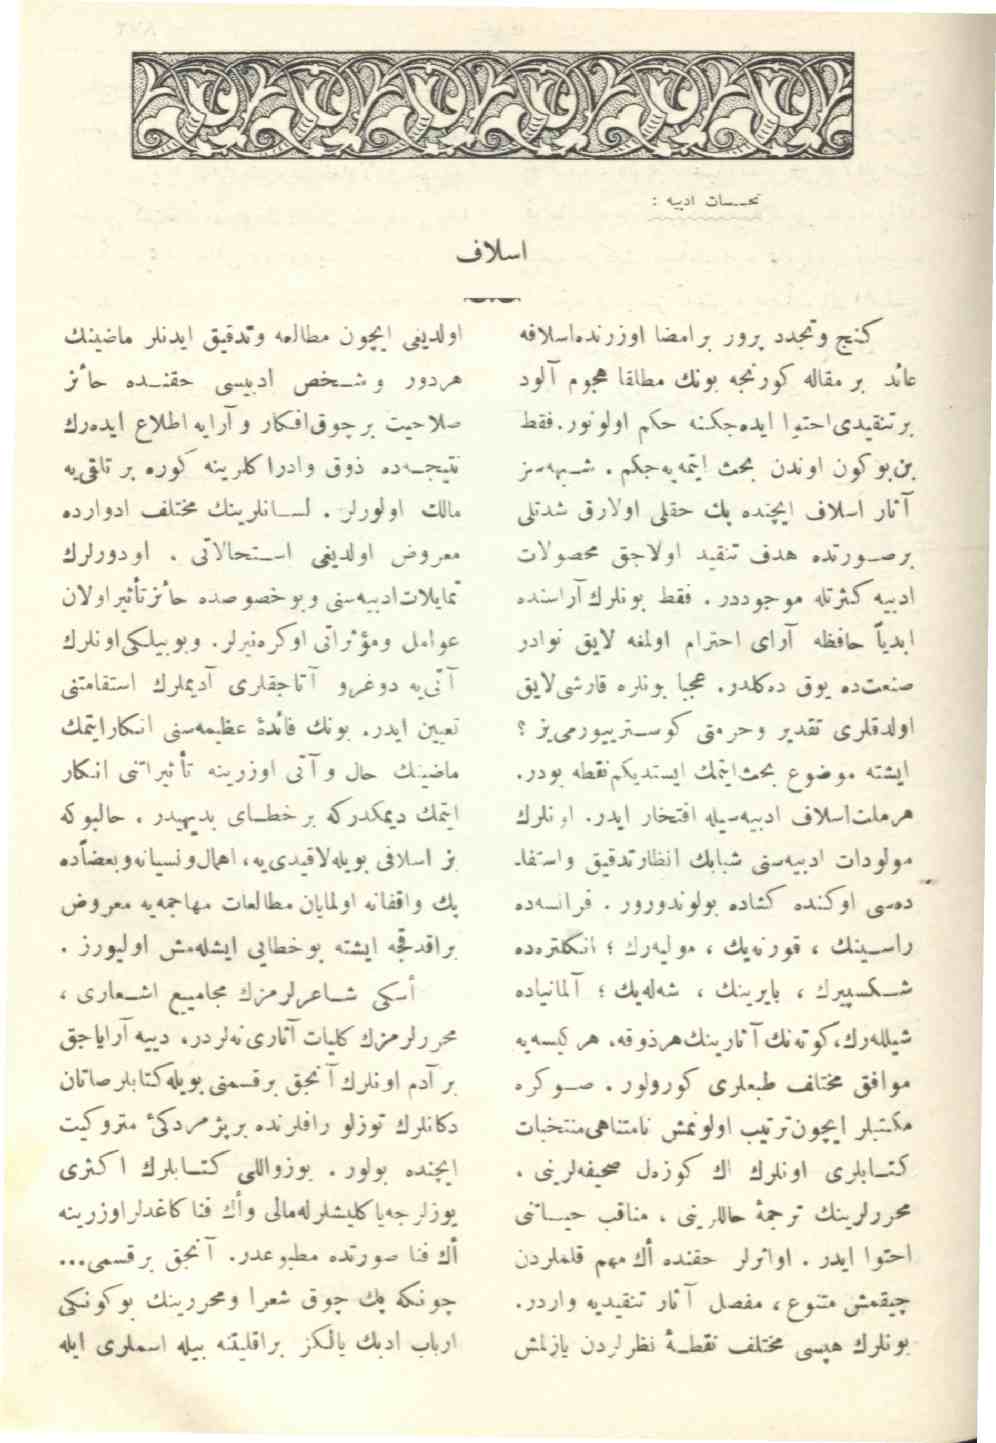 تحسسات ادبيه :
اسلاف
كنج وتجدد پرور بر امضا اوزرنده اسلافه
عائد بر مقاله كورنجه بونك مطلقا هجوم آلود
بر تنقيدى احتوا ايده جكنه حكم اولونور. فقط
بن بوكون اوندن بحث ايتميه جكم . شبهه سز
آثار اسلاف ايچنده پك حقلى اولارق شدتلى
بر صورتده هدف تنقيد اولاجق محصولات
ادبيه كثرتله موجوددر . فقط بونلرك آراسنده
ابدياً حافظه آراى احترام اولمغه لايق نوادر
صنعت ده يوق ده كلدر. عجبا بونلره قارشى لايق
اولدقلرى تقدير وحرمتى كوستريييورمى يز ؟
ايشته موضوع بحث ايتمك ايستديكم نقطه بودر.
هر ملت اسلاف ادبيه سيله افتخار ايدر. اونلرك
مولودات ادبيه سنى شبابك انظار تدقيق واستفا-
ده سى اوكنده كشاده بولوندورور . فرانسه ده
راسينك ، قورنه يك ، موليه رك ؛ انكلتره ده
شكسپيرك ، بايرينك ، شه له يك ؛ آلمانياده
شيلله رك، كوته نك آثارينك هر ذوقه، هر كيسه يه
موافق مختلف طبعلرى كورولور . صوكره
مكتبلر ايچون ترتيب اولونمش نامتناهى منتخبات
كتابلرى اونلرك اك كوزه ل صحيفه لرينى ،
محررلرينك ترجمهٔ حاللرينى ، مناقب حياتنى
احتوا ايدر . اواثرلر حقنده أك مهم قلملردن
چيقمش متنوع ، مفصل آثار تنقيديه واردر.
بونلرك هپسى مختلف نقطهٔ نظرلردن يازلمش
اولديغى ايچون مطالعه وتدقيق ايدنلر ماضينك
هر دور و شخص ادبيسى حقنده حائز
صلاحيت بر چوق افكار و آرايه اطلاع ايده رك
نتيجه ده ذوق وادراكلرينه كوره بر تلقى يه
مالك اولورلر . لسانلرينك مختلف ادوارده
معروض اولديغى استحالاتى . اودورلرك
تمايلات ادبيه سنى وبو خصوصده حائز تأثير اولان
عوامل ومؤثراتى اوكره نيرلر. وبو بيلكى اونلرك
آتى يه دوغرو آتاجقلرى آديملرك استقامتنى
تعيين ايدر. بونك فائدهٔ عظيمه سنى انكار ايتمك
ماضينك حال و آتى اوزرينه تأثيراتنى انكار
ايتمك ديمكدركه بر خطاى بديهيدر . حالبوكه
بز اسلافى بويله لاقيدى يه ، اهمال ونسيانه وبعضاً ده
پك واقفانه اولمايان مطالعات مهاجمه يه معروض
براقدقجه ايشته بو خطايى ايشله مش اوليورز .
أسكى شاعرلرمزك مجاميع اشعارى ،
محررلرمزك كليات آثارى نه لردر، دييه آراياجق
بر آدم اونلرك آنجق بر قسمنى بويله كتابلر صاتان
دكانلرك توزلو رافلرنده بر پژمردكئ متروكيت
ايچنده بولور . بوزواللى كتابلرك اكثرى
يوزلرجه ياكليشلرله مالى وأك فنا كاغدلر اوزرينه
أك فنا صورتده مطبوعدر. آنجق بر قسمى...
چونكه پك چوق شعرا ومحررينك بوكونكى
ارباب ادبك يالكز براقليقنه بيله اسملرى ايله